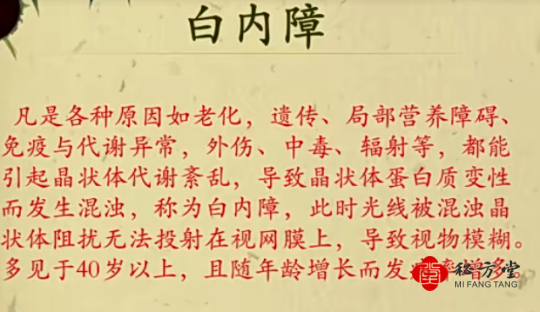 白内障
凡是各种原因如老化，遗传、局部营养障碍、
免疫与代谢异常，外伤、中毒、辐射等，都能
引起晶状体代谢紊乱，导致晶状体蛋白质变性
而发生混浊，称为白内障，此时光线被混浊晶
状体阻扰无法投射在视网膜上，导致视物模糊。
多见于40岁以上，且随年龄增长而发 增多。
秘方堂
MI FANG TANG